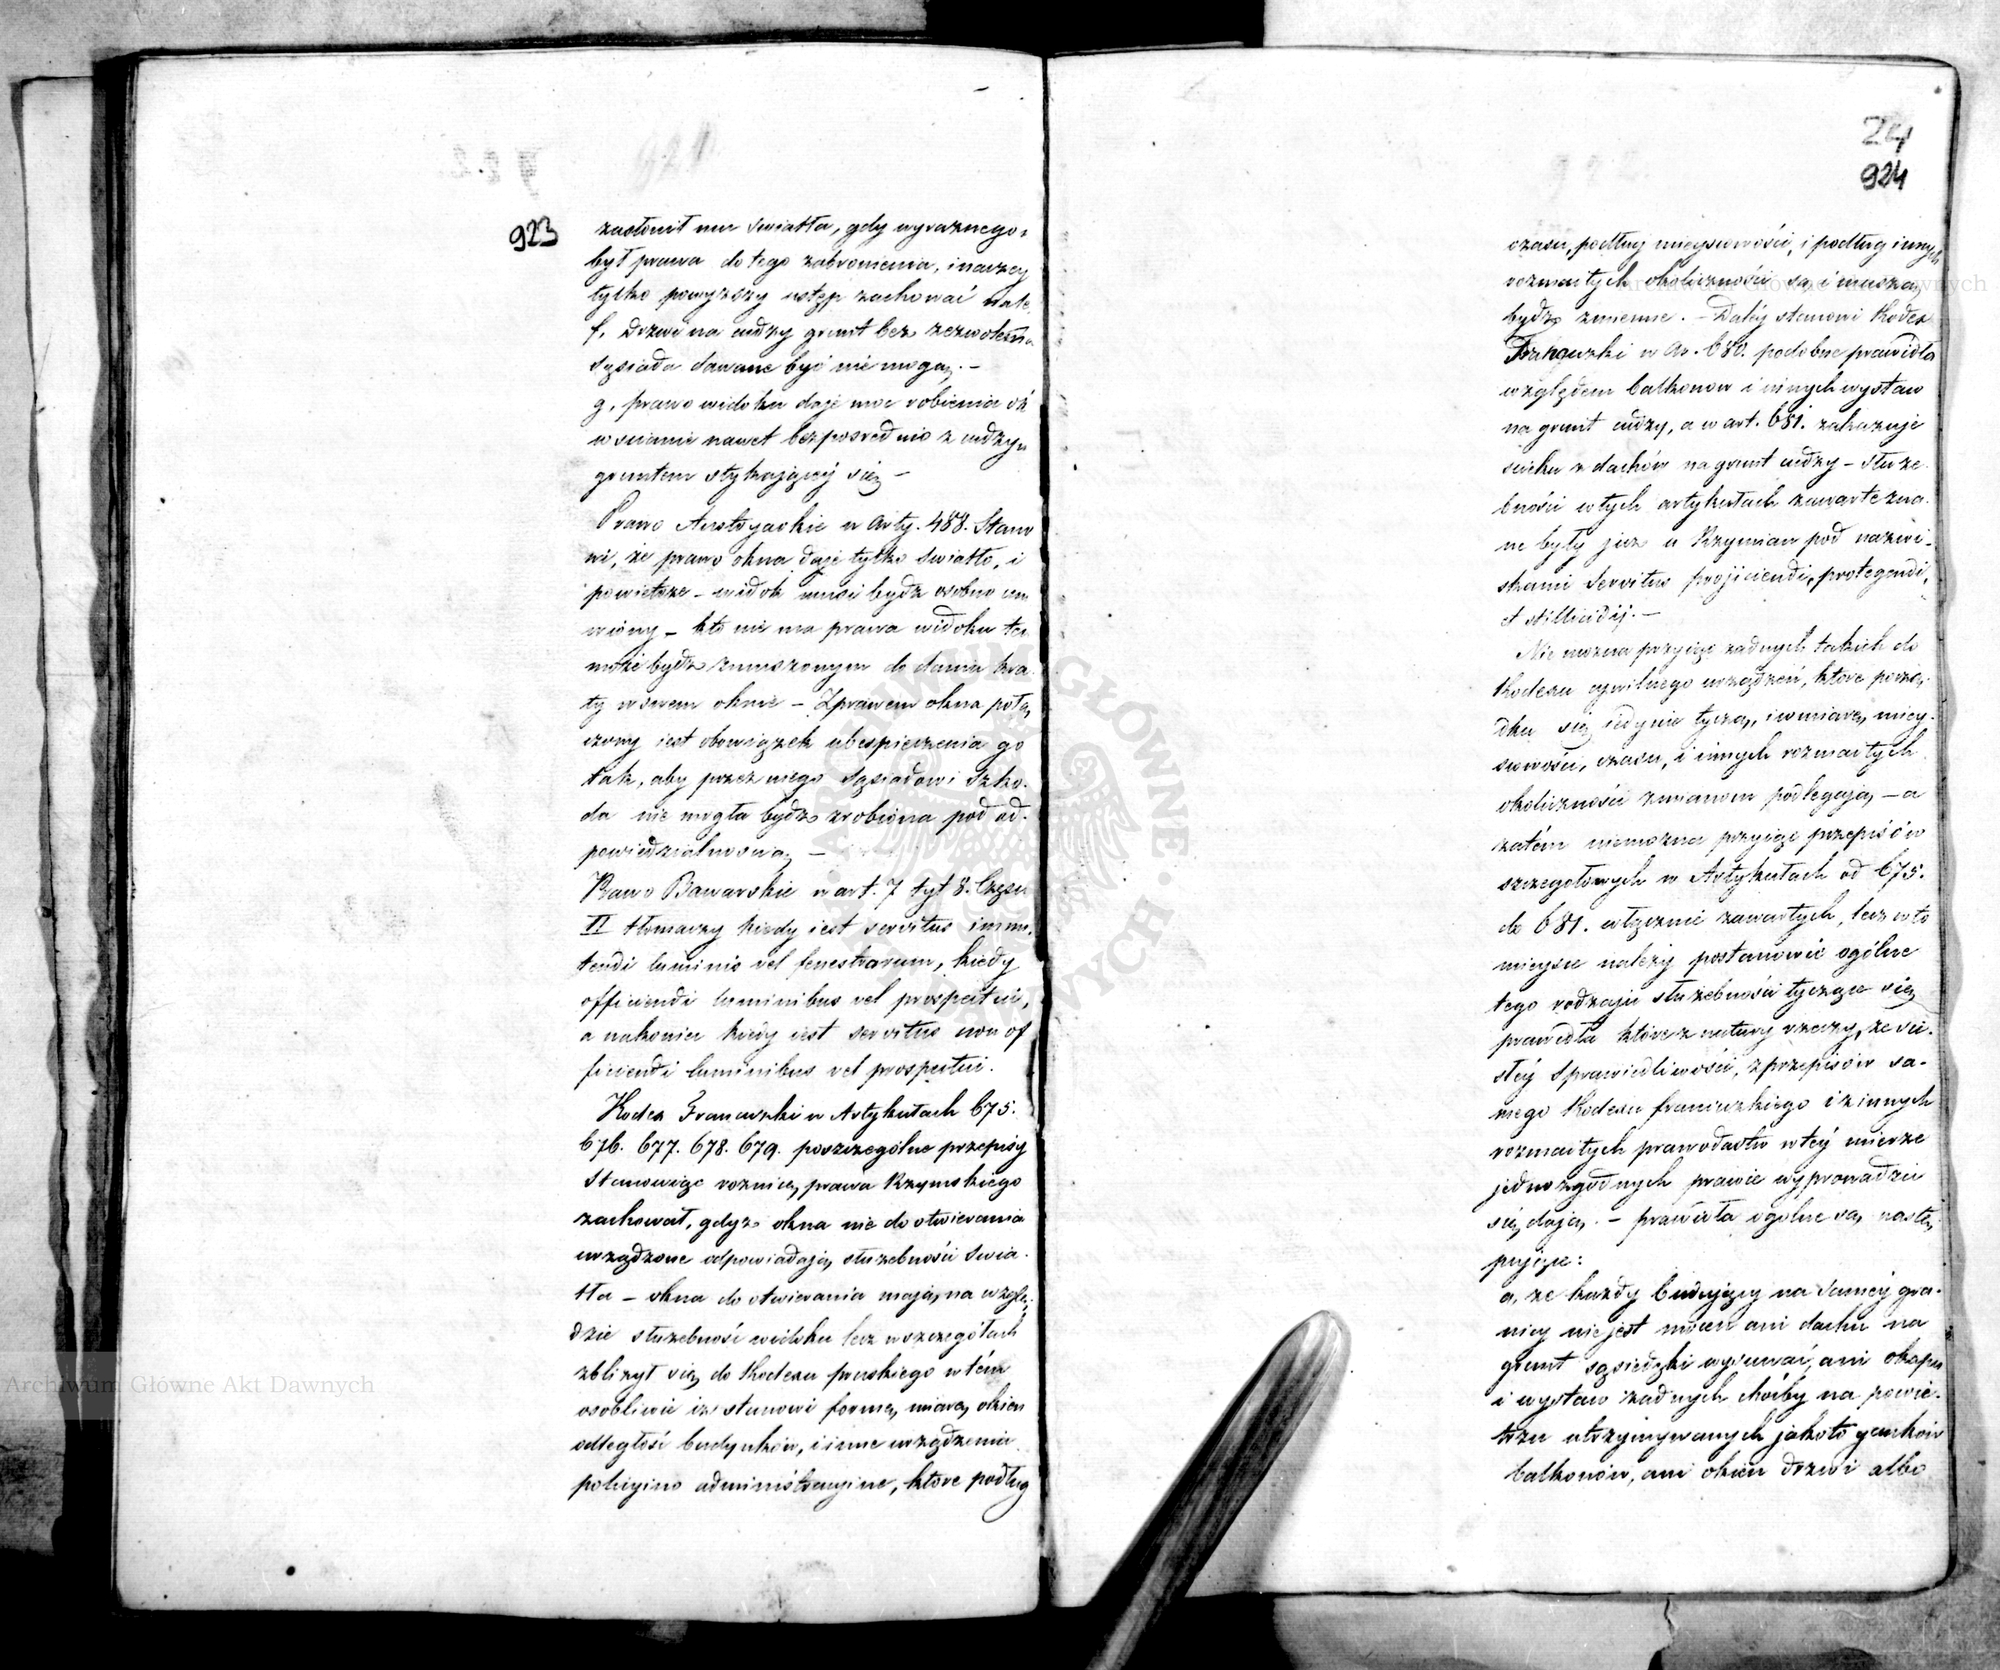 923
zasłonił mu światła, gdy wyraznego
był prawa do tego zabronienia, inaczey
tylko powyzszy ustęp zachować nale
f, Drzwi na cudzy grunt bez zezwolenia
sąsiada dawane być nie mogą. –
g, prawo widoku daje moc robienia ok
w scianie nawet bezposrednio z cudzym
gruntem stykającéy się –
Prawo Austryackie w Arty. 488. Stano
wi, że prawo okna daje tylko swiatło, i
powietrze – widok musi bydź osobno um
wiony – kto nie ma prawa widoku ten
może bydź zmuszonym do dania kra
ty w swem oknie – Z prawem okna połą
czony iest obowiązek ubespieczenia go
tak, aby przez niego Sąsiadowi szko.
da nie mogła bydź zrobiona pod od.
powiedzialnoscią –
Prawo Bawarskie w art. 7 tyt 8. Częsci
II tłomaczy kiedy iest servitus immi
tendi luminis vel fenestrarum, kiedy
officiendi luminibus vel prospectui,
a nakoniec kiedy iest servitus non of
ficiendi luminibus vel prospectui.
Kodex Francuzki w Artykułach 675.
676. 677. 678. 679. poszczególne przepisy
Stanowiąc roznicę prawa Rzymskiego
zachował, gdyż okna nie do otwierania
urządzone odpowiadają służebności swia.
tła – okna do otwierania mają na wzglę
dzie służebność widoku lecz w szczegółach
zbliżył się do Kodexu pruskiego w tém
osobliwie iż stanowi formę, miarę, okien
odległość budynków, i inne urządzenia
policyino administracyine, które podług
24
924
czasu, podług mieyscowości, i podług innych
rozmaitych okoliczności są i muszą
bydź zmienne. – Daléy stanowi Kodex
Francuzki w Ar. 680. podobne prawidła
względem balkonow i innych wystaw
na grunt cudzy, a w art. 681. zakazuje
scieku z dachów na grunt cudzy – służe
bności w tych artykułach zawarte zna
ne były juz u Rzymian pod nazwi-
skami Servitus projiciendi, protegendi,
et stillicidij. –
Nie mozna przyiąć żadnych takich do
Kodexu cywilnego urządzeń, które porzą
dku się iedynie tyczą, i w miarę miey
scowości, czasu, i innych rozmaitych
okoliczności zmianom podlegają – a
zatém niemożna przyiąć przepisów
szczegołowych w Artykułach od 675.
do 681. włącznie zawartych, lecz w to
mieysce należy postanowić ogólne
tego rodzaju służebności tyczące się
prawidła które z natury rzeczy, ze ści.
słéy Sprawiedliwości, z przepisów sa-
mego Kodexu francuzkiego i z innych
rozmaitych prawodastw w téy mierze
jednozgodnych prawie wyprowadzić
się dają. – prawidła ogolne są nastę
pujące:
a, że każdy budujący na saméy gra-
nicy nie jest mocen ani dachu na
grunt sąsiedzki wysuwać, ani okapu
i wystaw żadnych choćby na powie-
trzu utrzymywanych jakoto ganków
balkonów, ani okien drzwi albo
Archiwum Główne Akt Dawnych